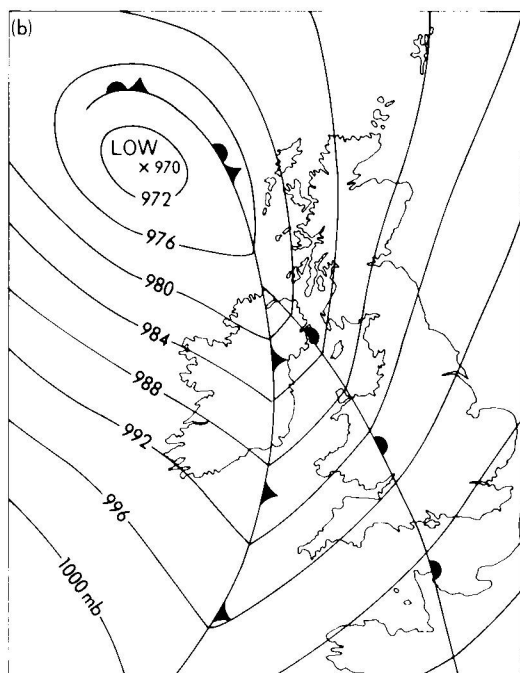 (b)
LOW
× 970
972
976
980
984
988
992
996
1000 mb